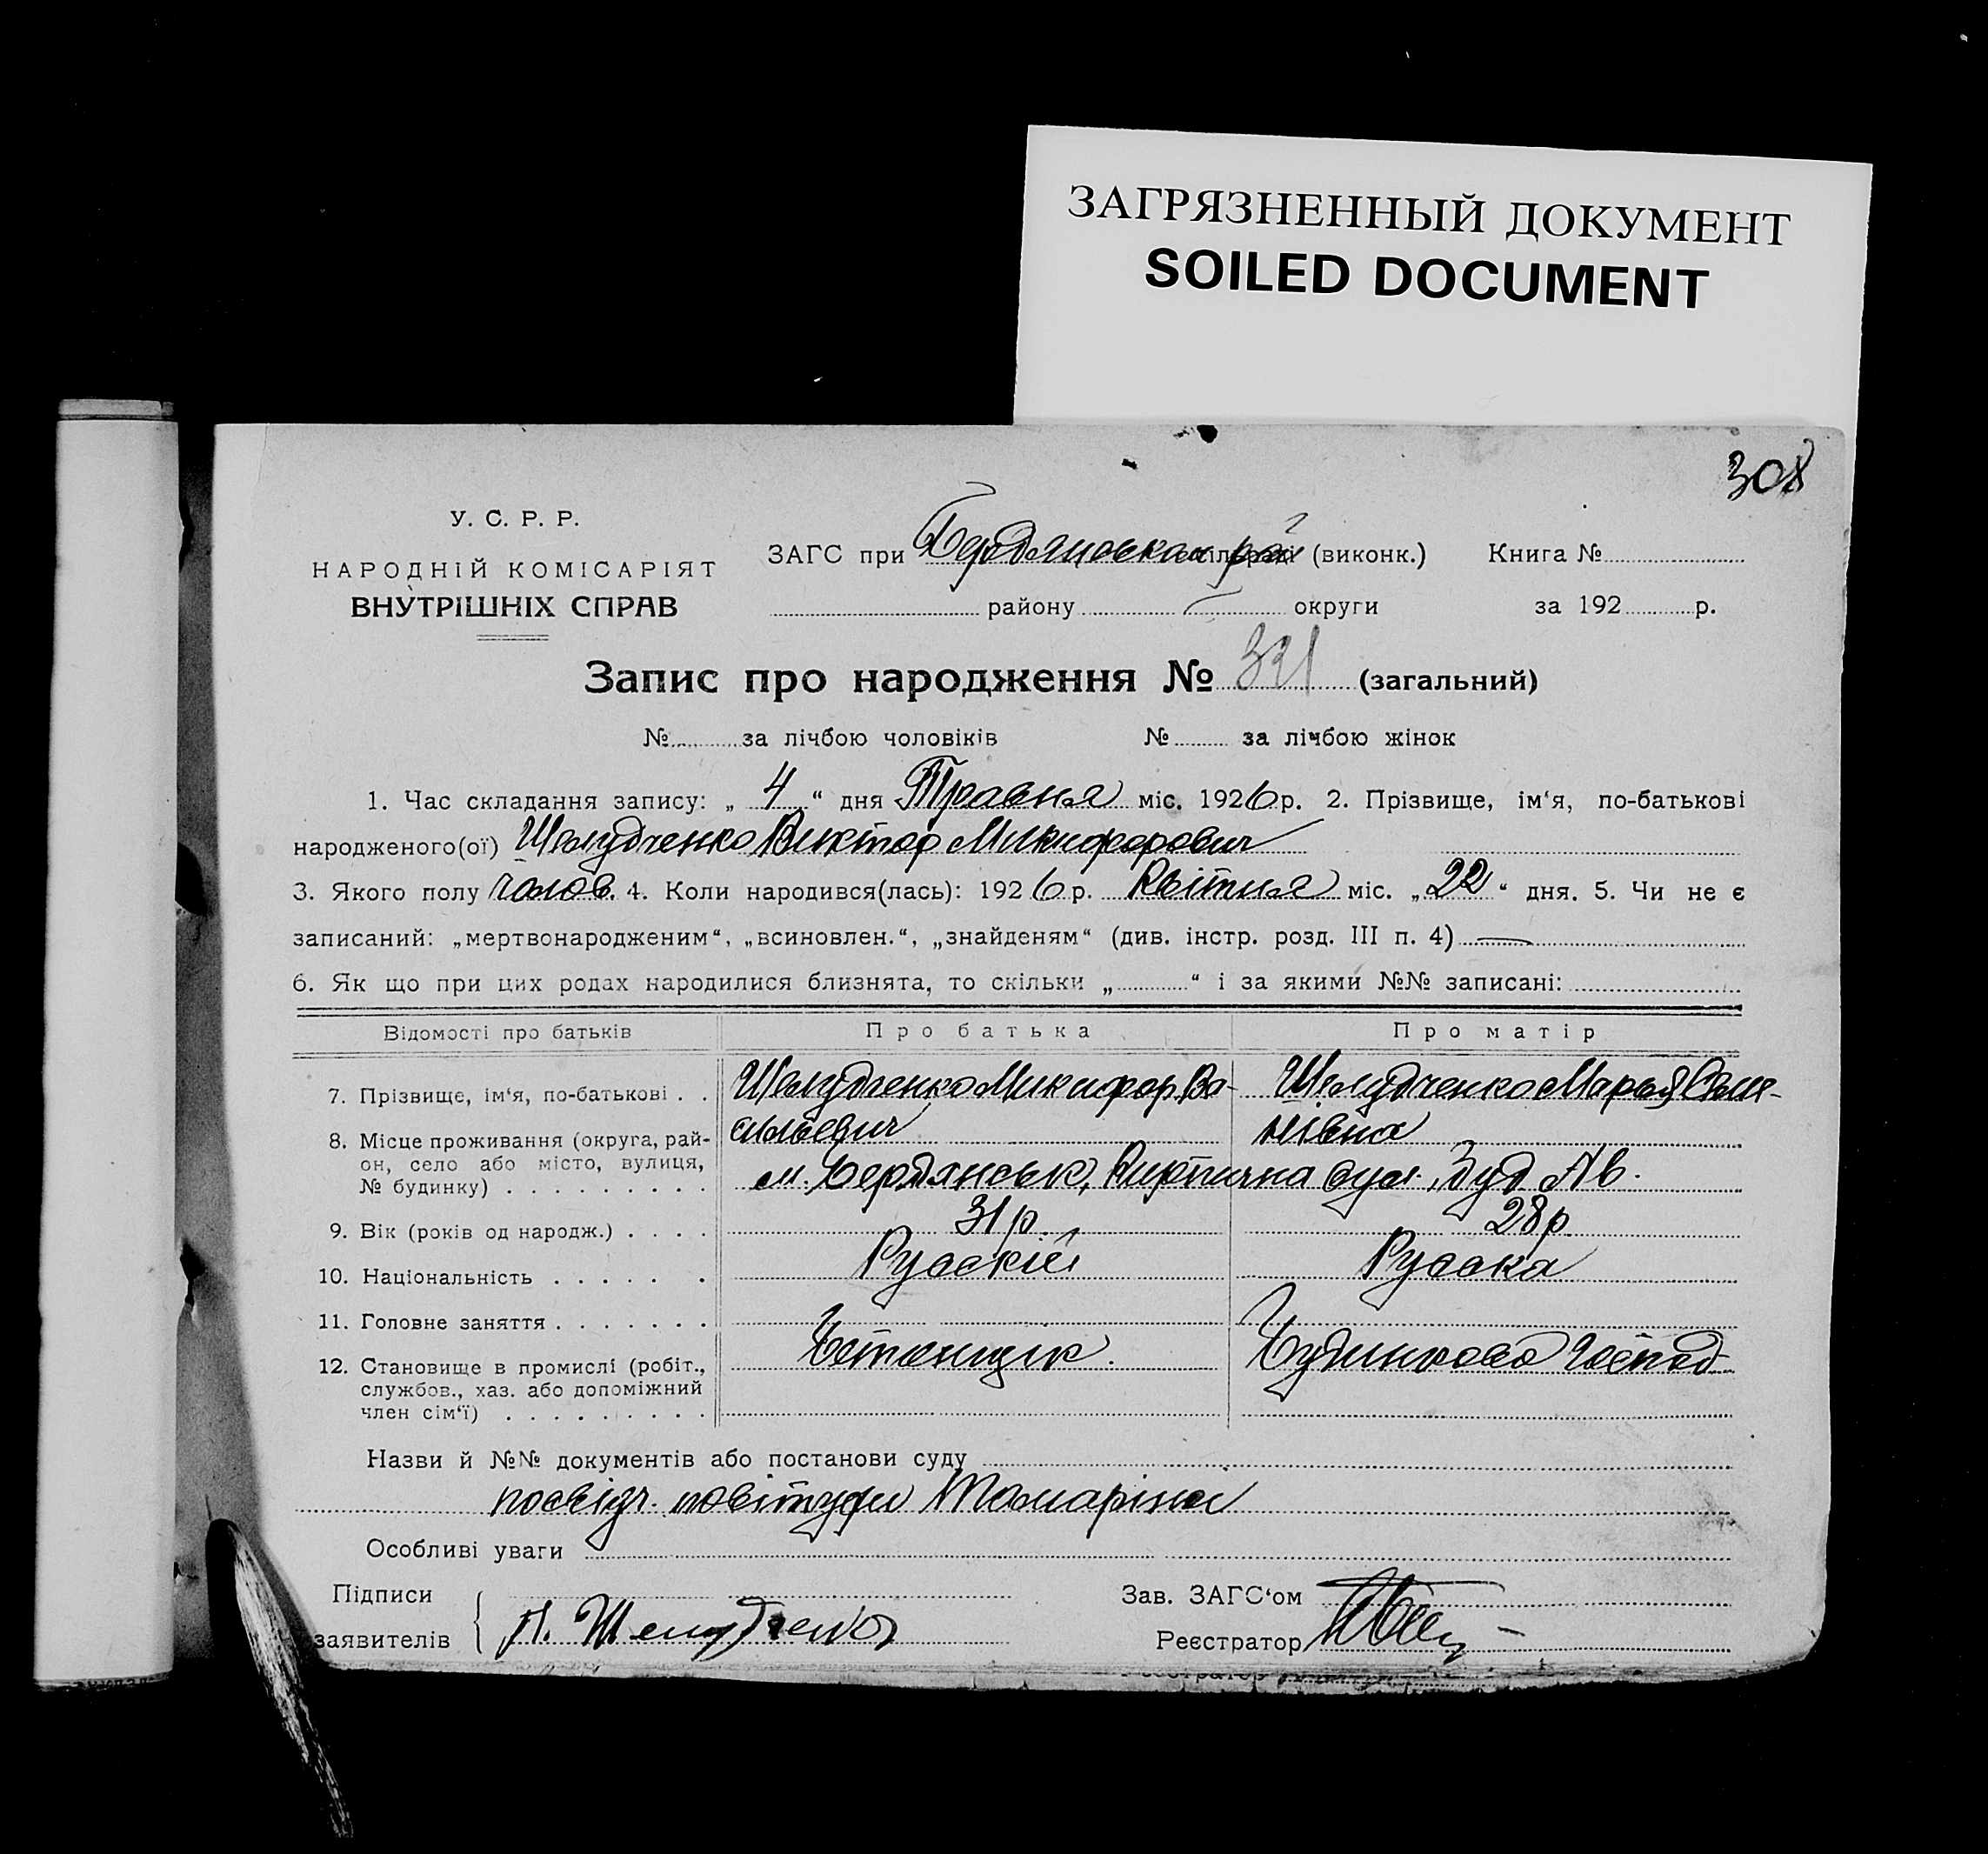 ЗАГРЯЗНЕННЫЙ ДОКУМЕНТ
SOILED DOCUMENT
308
У. С. Р. Р.
НАРОДНІЙ КОМІСАРІЯТ
ВНУТРІШНІХ СПРАВ
ЗАГС при Бердянська рай (виконк.) Книга №
району округи за 192 р.
Запис про народження № 321 (загальний)
№ за лічбою чоловіків № за лічбою жінок
1. Час складання запису: „ 4 “ дня Травня міс. 1926 р. 2. Прізвище, ім‘я, по-батькові
народженого(ої) Шелудченко Виктор Микифорович
3. Якого полу чолов. 4. Коли народився(лась): 1926 р. Квітня міс. „ 22 “ дня. 5. Чи не є
записаний: „мертвонародженим“, „всиновлен.“, „знайденям“ (див. інстр. розд. III п. 4)
6. Як що при цих родах народилися близнята, то скільки „ “ і за якими №№ записані:
Відомості про батьків Про батька Про матір
7. Прізвище, ім‘я, по-батькові . . Шелудченко Микифор Ва- Шелудченко Марья Семе-
8. Місце проживання (округа, рай- сильевич нівна
он, село або місто, вулиця,
№ будинку) . . . . . . . . . м. Бердянськ, Кирпична вул., буд
9. Вік (років од народж.) . . . . 31 р. 28 р.
10. Національність . . . . . . Русскій Русска
11. Головне заняття . . . . . . .
12. Становище в промислі (робіт., Будинкова господ
службов., хаз. або допоміжний
член сім‘ї) . . . . . . . . .
Назви й №№ документів або постанови суду
посвідч. повітухи
Особливі уваги
Підписи
заявителів Шелудченко
Зав. ЗАГС‘ом
Реєстратор